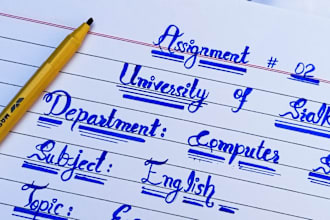 Assignment # 02
University of
Department: Computer
Subject: English
Topic: